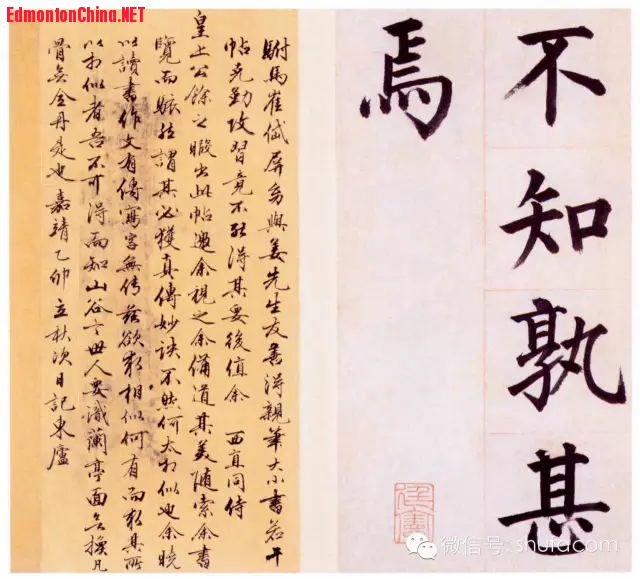 EdmontonChina.NET
不知孰其
焉
駙馬崔岱屏多與姜先生友善得親筆大小書若干
帖克勤改習竟不能得其要後值余 西直同侍
皇上公餘之暇出此帖邀余視之余備道其美随索余書
覽而賑然謂其必獲真傳妙訣不然何太相似也余曉
以讀書作文有傳寫字無傳茲欲求相似何有而求其所
以相似者吾不可得而知山谷言世人要識蘭亭面無換凡
骨無金丹是也 嘉靖乙卯立秋次日記東廬
微信号: shufacom